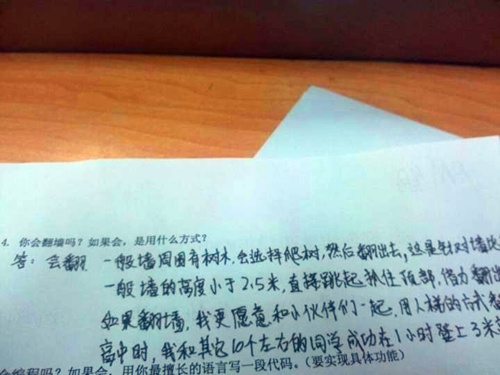 4. 你会翻墙吗？如果会，是用什么方式？
答：会翻 一般墙周围有树木，会选择爬树，然后翻出去，这是针对墙
一般墙的高度小于2.5米，直接跳起抓住顶部，借力翻出
如果翻墙，我更愿意和小伙伴们一起，用人梯的方式
高中时，我和其它10个左右的同学成功在1小时登上3米
会编程吗？如果会，用你最擅长的语言写一段代码。（要实现具体功能）